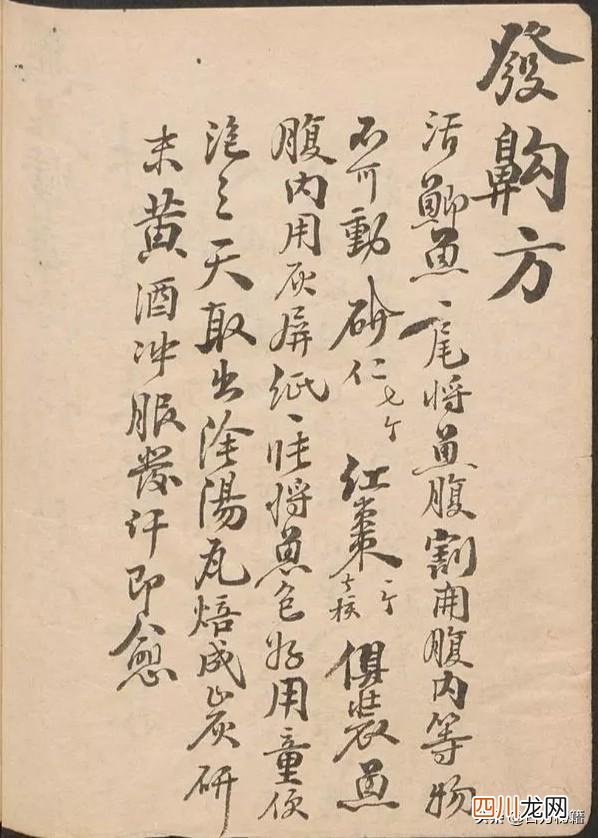 發齁方
活鯽魚一尾將魚腹割開腹内等物
不可動 砂仁七个 紅棗一个去核 俱裝魚
腹内用灰屏紙一張將魚包好用童便
泡三天取出陰陽瓦焙成炭研
末黃酒冲服發汗即愈
四川龙网